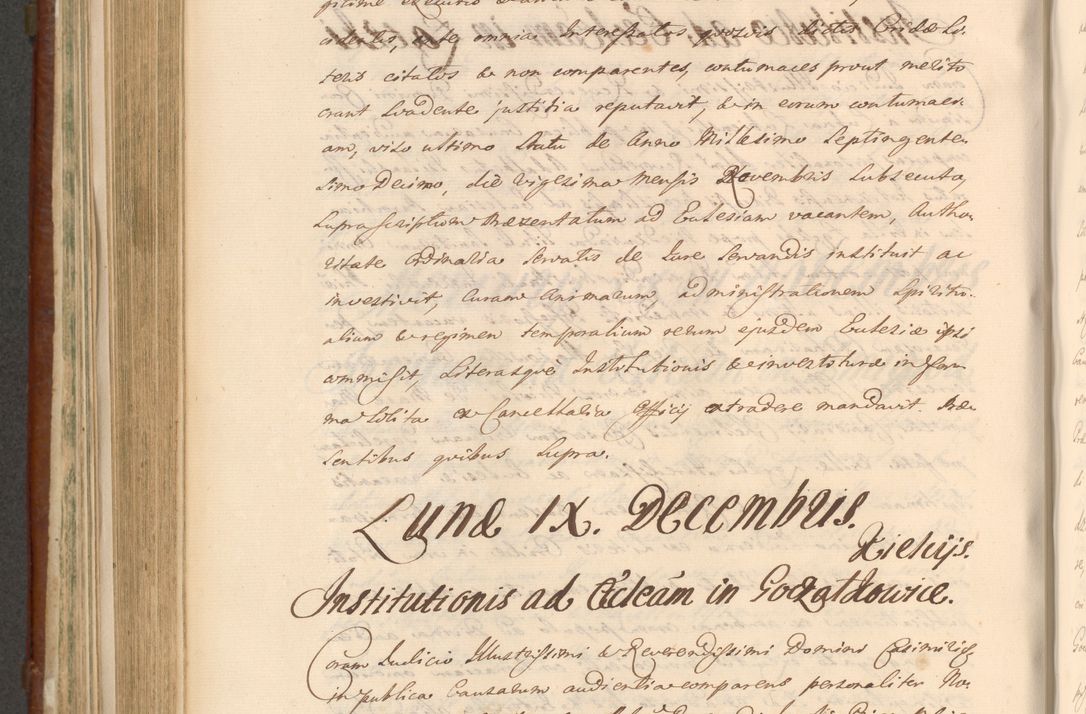 citatis, ante omnia Interessatos quosvis dictis Cridæ Li-
teris citatos & non comparentes, contumaces prout merito
erant svadente justitia reputavit, & in eorum contumaci-
am, viso ultimo Statu de Anno Millesimo Septingente-
simo Decimo, die vigesima Mensis Novembris subsecuta,
supra scriptum Præzentatum ad Ecclesiam vacantem, Autho-
ritate Ordinaria servatis de Jure servandis instituit ac
investivit, Curam Animarum, administrationem Spiritu-
alium & regimen temporalium rerum ejusdem Ecclesiæ ipsi
commisit, Literasque Institutionis & investituræ in for-
ma solita ex Cancellaria Officij extradere mandavit. Præ-
sentibus quibus supra.
Lunæ IX. Decembris.
Kielcijs.
Institutionis ad Ecleam in Goczałkowice.
Coram Judicio Illustrissimi & Reverendissimi Domini
in publica Causarum audientia comparens personaliter No-